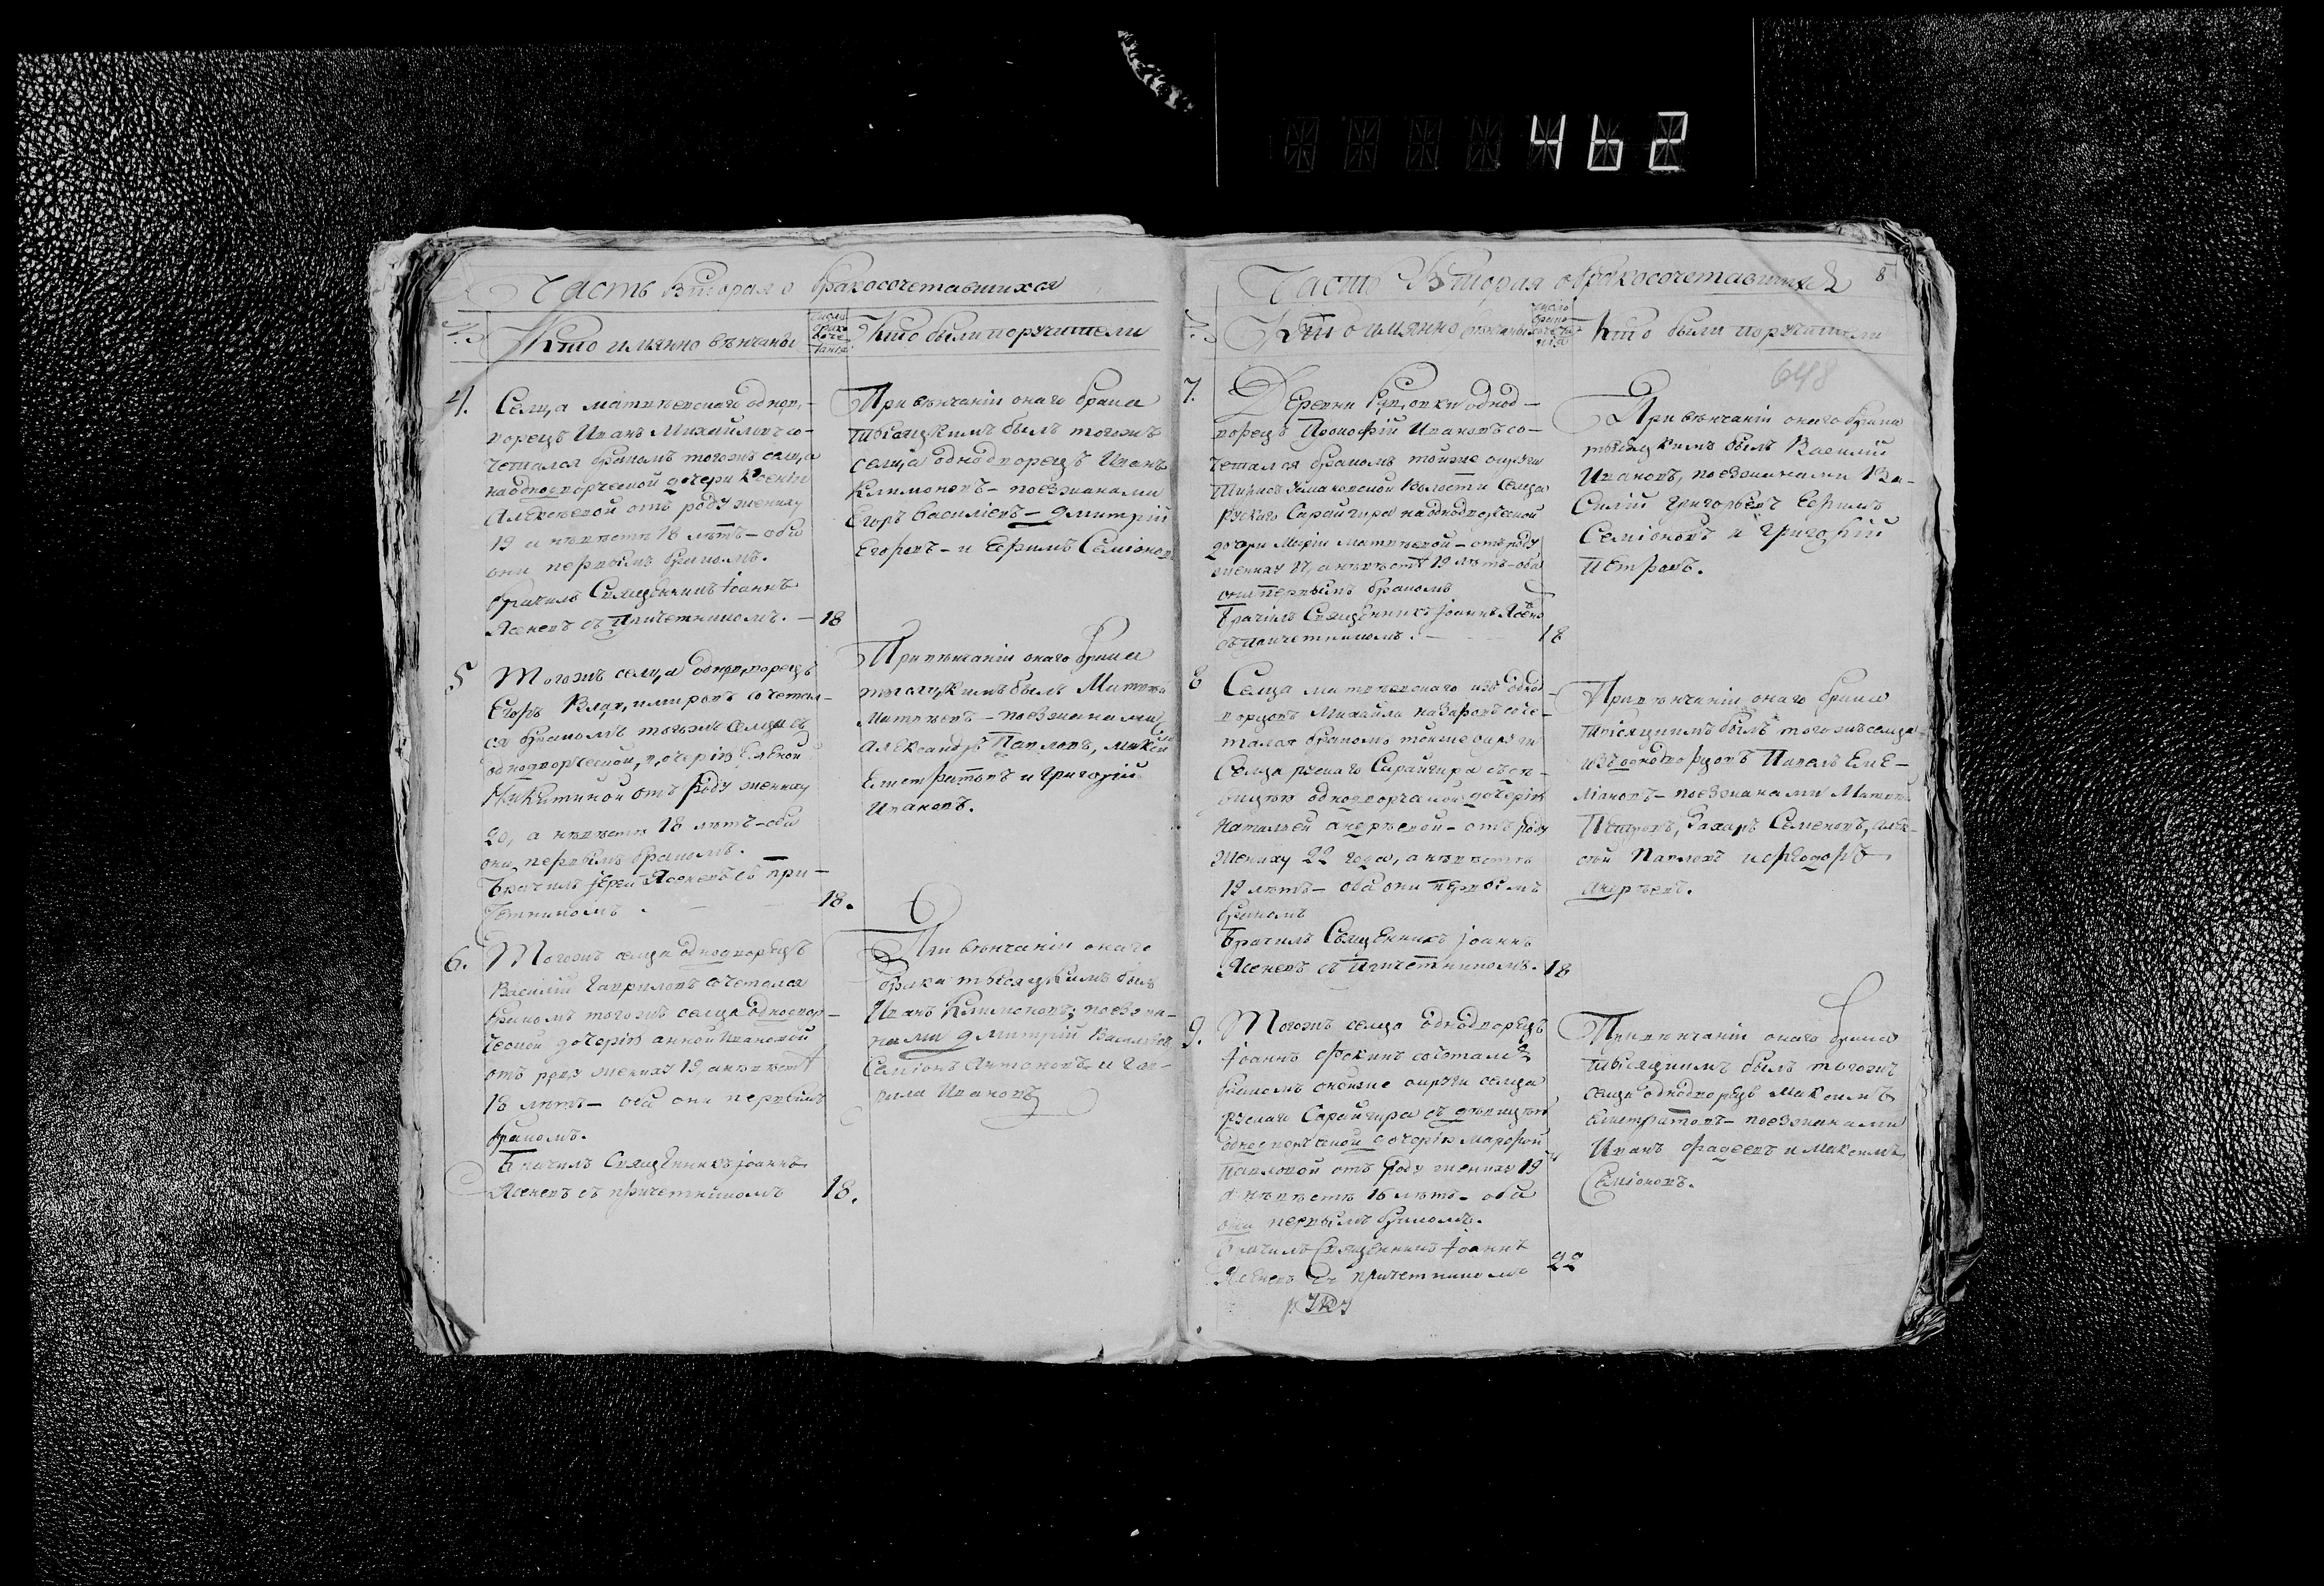 462
Часть Вторая о бракосочетавшихся
№
Кто имянно вѣнчаны
Число
брако
соче
танія
Кто были поручители
4.
Селца матвѣевскаго однод-
ворецъ Иванъ Михайловъ со-
четался бракомъ тогожъ селца
на однодворческой дочери Ксеніи
Алексѣевой отъ роду жениху
19 а невѣстѣ 18 лѣтъ - оба
они первымъ бракомъ.
брачилъ Священникъ Іоаннъ
Ясеневъ съ Причетникомъ. — 18
При вѣнчаніи онаго брака
тысяцкимъ былъ тогожъ
селца однодворецъ Иванъ
Климоновъ - поезжанами
Егоръ Василіевъ - Дмитрій
Егоровъ - и Ефимъ Семіонов
5
Тогожъ селца однодворецъ
Егоръ Владимировъ сочетал-
ся бракомъ тогожъ селца съ
однодворческой дочерію
Никитиной отъ роду жениху
20, а невѣстѣ 18 лѣтъ - оба
они первымъ бракомъ.
Брачилъ Іерей Ясеневъ съ при-
четникомъ. — 18.
При вѣнчаніи онаго брака
тысяцкимъ былъ Матвѣй
Матвѣевъ - поезжанами
Александръ Павловъ, Максим
Елистратовъ и Григорій
Ивановъ.
6.
Тогожъ селца однодворецъ
Василій Гавриловъ сочетался
бракомъ тогожъ селца однодвор-
ческой дочерію анной Ивановой
отъ роду жениху 19, а невѣстѣ
18 лѣтъ - оба они первымъ
бракомъ.
Брачилъ Священникъ Іоаннъ
Ясеневъ съ причетникомъ 18.
При вѣнчаніи онаго
брака тысяцкимъ былъ
Иванъ Климоновъ; поезжа-
нами Дмитрій Василіевъ
Семіонъ Антоновъ и Гав-
рила Ивановъ
Часть Вторая о бракосочетавшихся
8
№
Кто имянно вѣнчаны
Число
брако
сочета
нія
Кто были поручители
648
7.
Деревни Радовки однод-
ворецъ Прокофій Ивановъ со-
четался бракомъ тойже округи
волости Селца
Рускаго Сарайгира на однодворческой
дочери Маріи Матвѣевой - отъ роду
жениху 21, а невѣстѣ 19 лѣтъ - оба
они первымъ бракомъ
Брачилъ Священникъ Іоаннъ Ясенев
съ причетникомъ. — 18
При вѣнчаніи онаго брака
тысяцкимъ былъ Василій
Ивановъ, поезжанами Ва-
силій Григорьевъ Ефимъ
Семіоновъ и Григорій
Петровъ.
8
Селца матвѣевскаго изъ однод-
ворцовъ Михайла Назаровъ соче-
тался бракомъ тойже округи
Селца рускаго Сарайгира съ дѣ-
вицею однодворческой дочерію
Натальей Андрѣевой - отъ роду
жениху 22 года, а невѣстѣ
19 лѣтъ - оба они первымъ
бракомъ
Брачилъ Священникъ Іоаннъ
Ясеневъ съ Причетникомъ. 18
При вѣнчаніи онаго брака
тысяцкимъ былъ тогожъ селца
изъ однодворцовъ Павелъ Еме-
ліановъ - поезжанами Матвѣй
Петровъ, Захаръ Семеновъ, Алек-
сѣй Павловъ и Феодоръ
Андрѣевъ.
9.
Тогожъ селца однодворецъ
Іоаннъ Фокинъ сочетался
бракомъ онойже округи селца
рускаго Сарайгира съ дѣвицею
однодворческой дочерію Марфой
Павловой отъ роду жениху 19
а невѣстѣ 16 лѣтъ - оба
они первымъ бракомъ.
Брачилъ Священникъ Іоаннъ
Ясеневъ съ причетникомъ 22
При вѣнчаніи онаго брака
тысяцкимъ былъ тогожъ
селца однодворецъ Максимъ
Елистратовъ - поезжанами
Иванъ Фадеевъ и Максимъ
Семіоновъ.